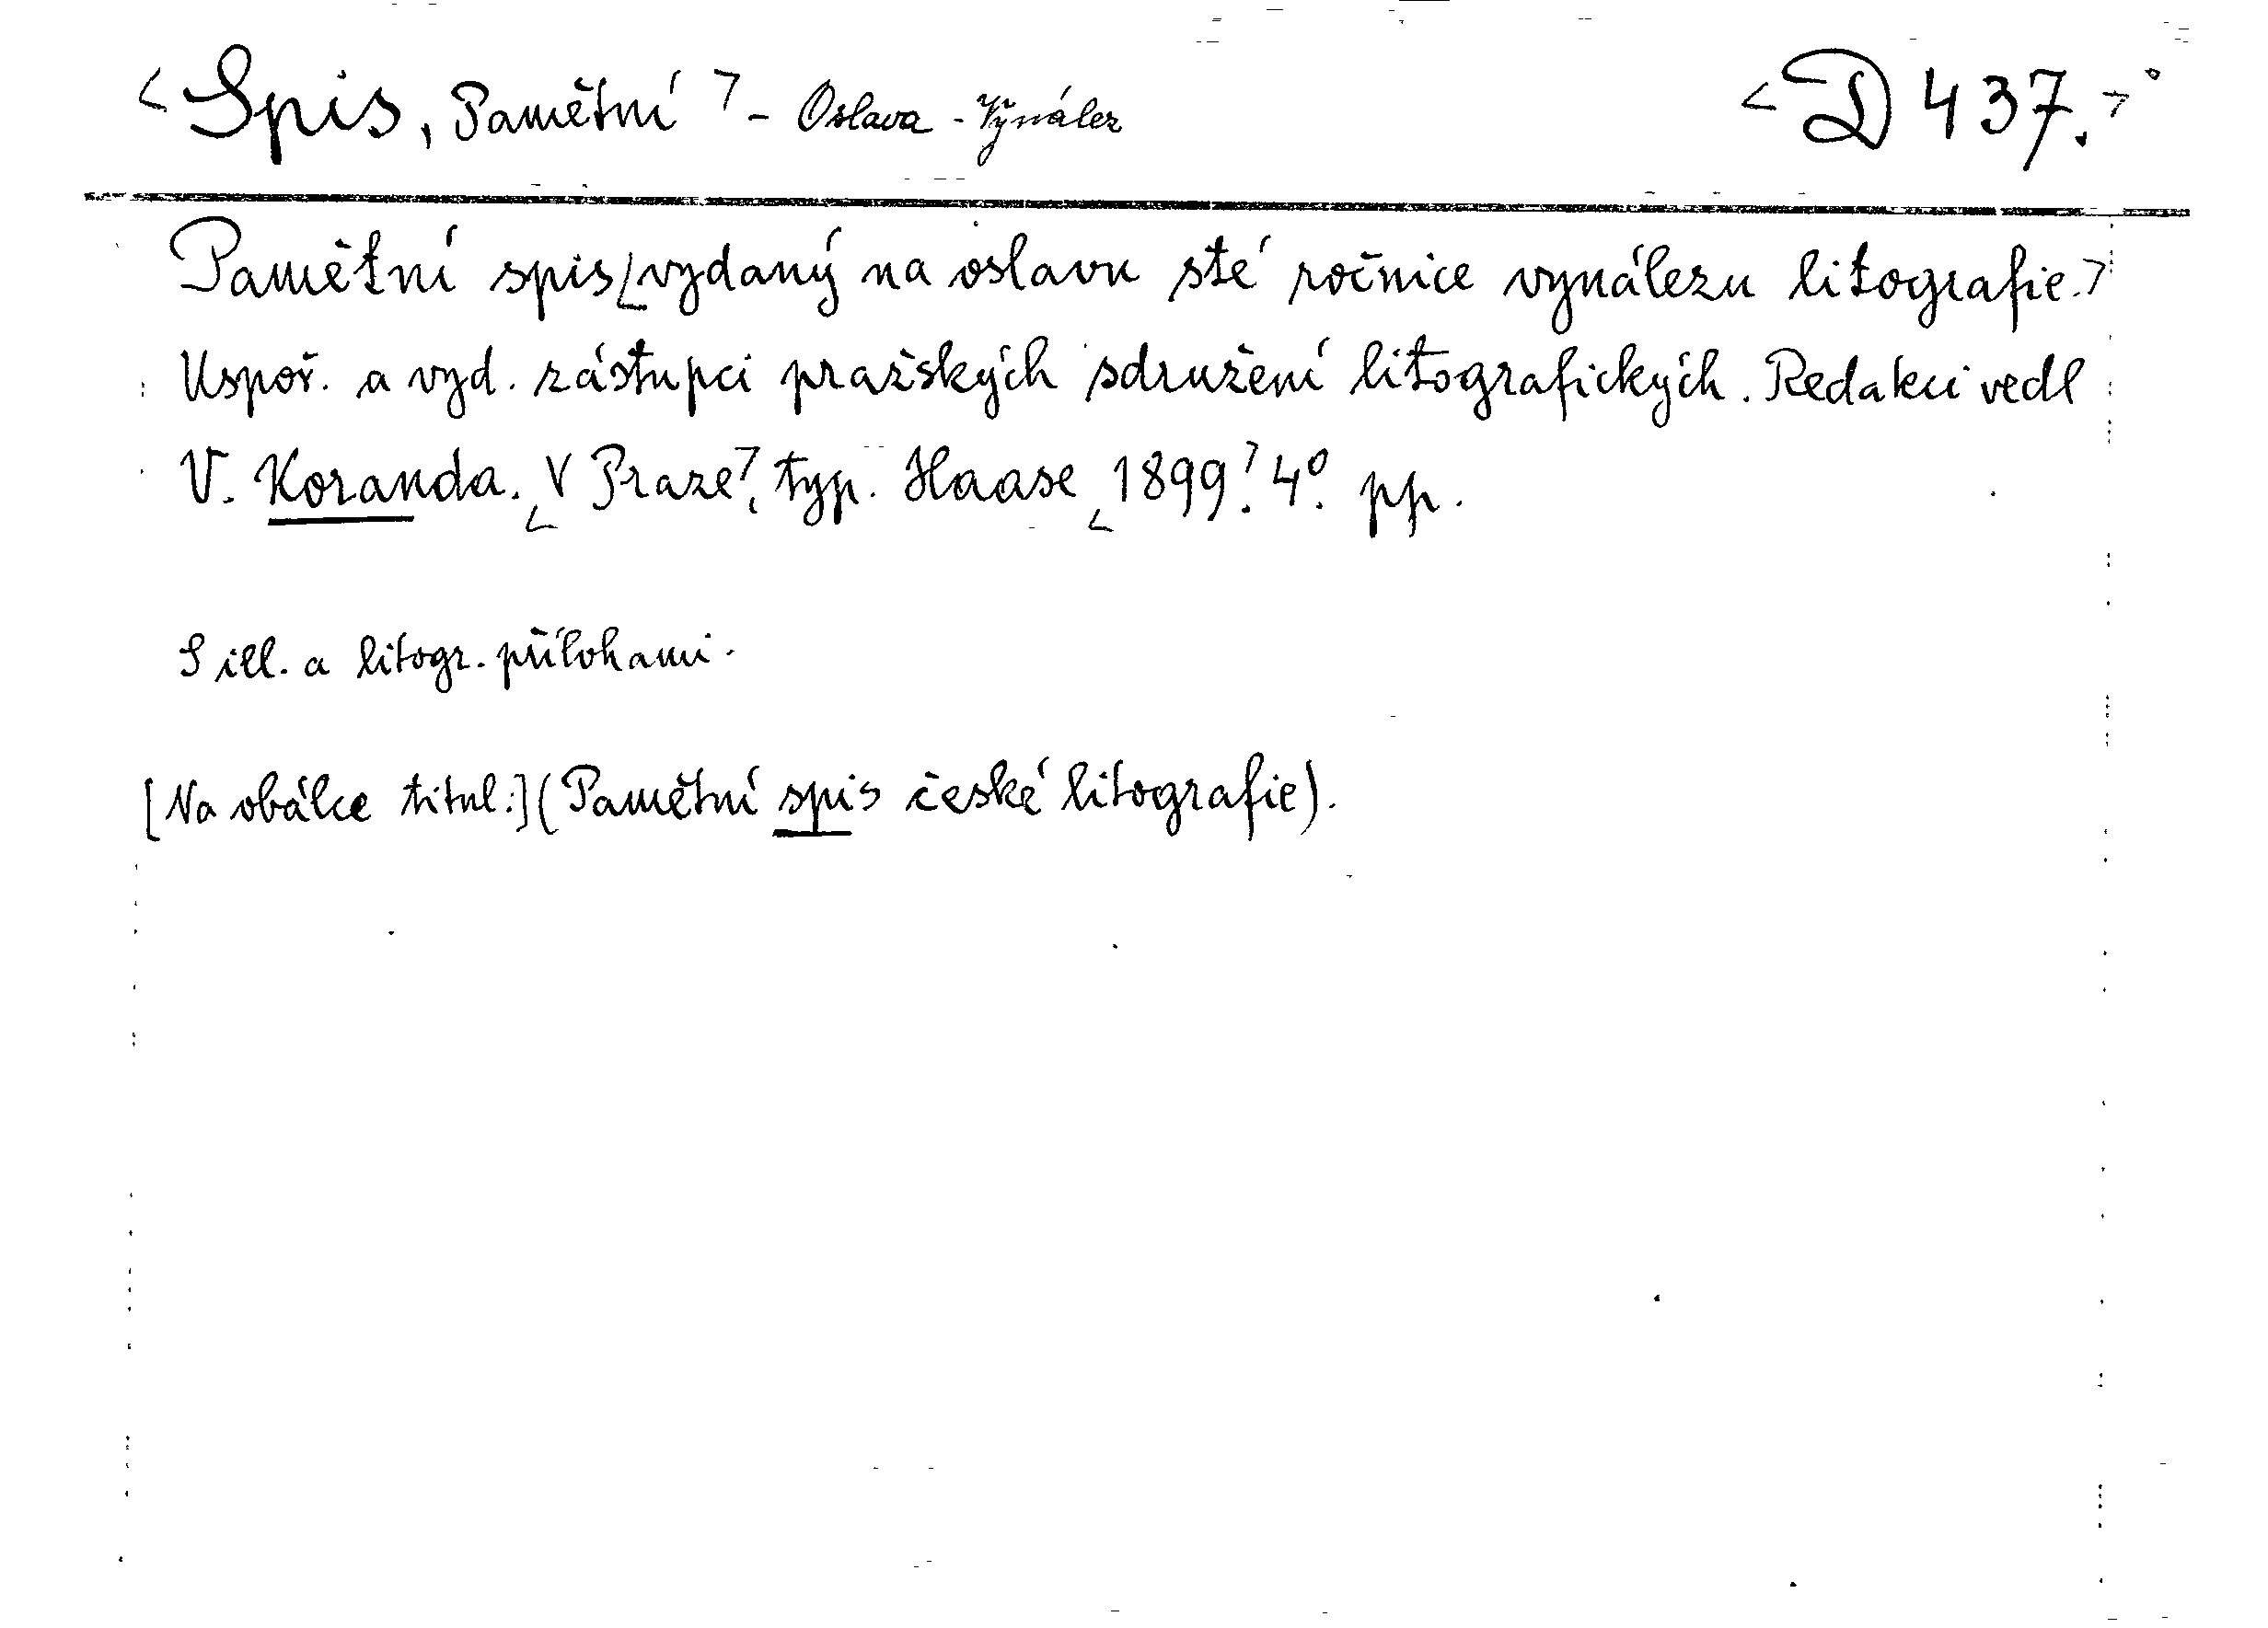 <Spis, Pamětní> - Oslava - Vynález <D 437.>
Pamětní spis <vydaný na oslavu sté ročnice vynálezu litografie.>
Uspoř. a vyd. zástupci pražských sdružení litografických. Redakci vedl
V. Koranda. <V Praze>, typ. Haase <1899>. 4º. pp.
S ill. a litogr. přílohami.
[Na obálce titul:] (Pamětní spis české litografie).